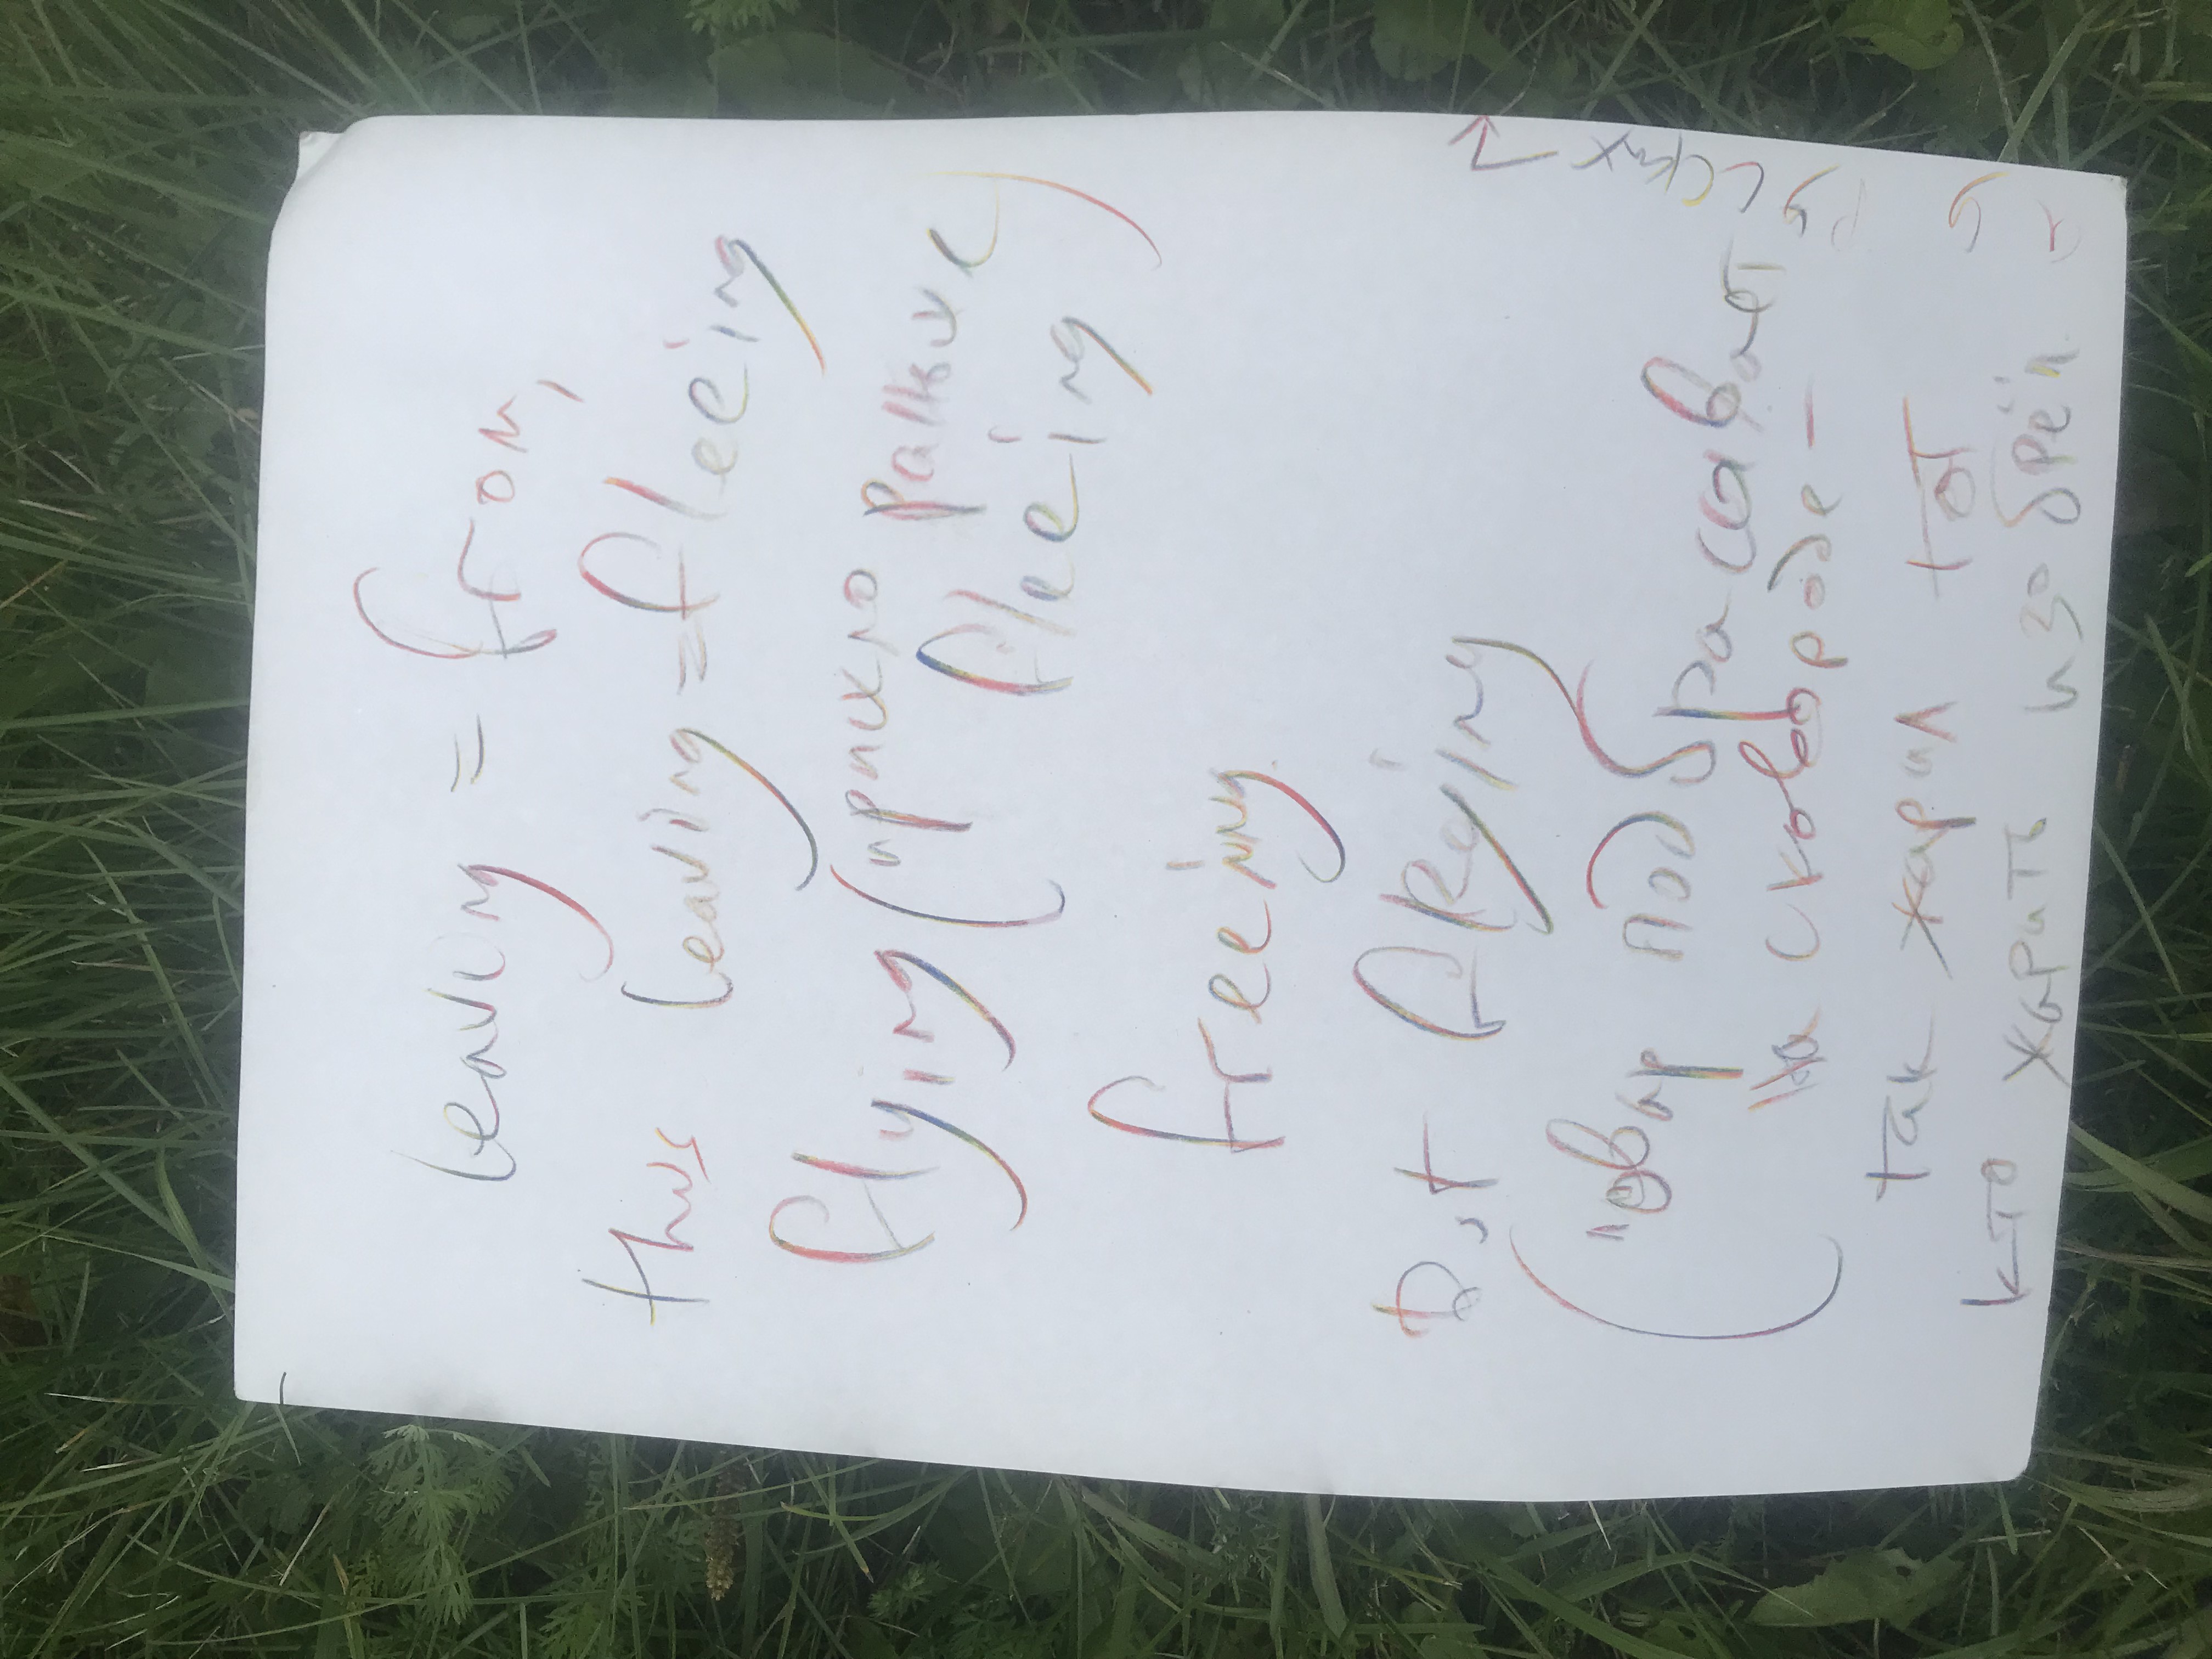 leaving = from,
thus leaving = fleeing
flying (пришло раньше
fleeing)
freeing
but fRying
(повар подбрасавает
на сковороде —
так жарил тот
кто жарить изобрёл
а у русских →